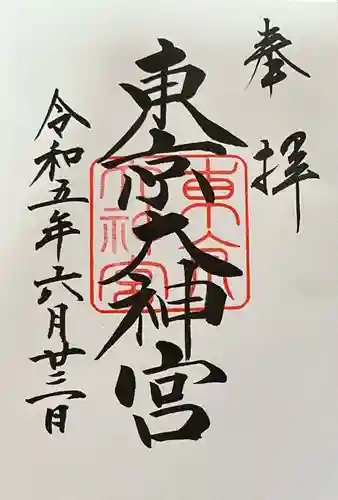 奉拝
東京大神宮
令和五年六月廿三日
東京大神宮